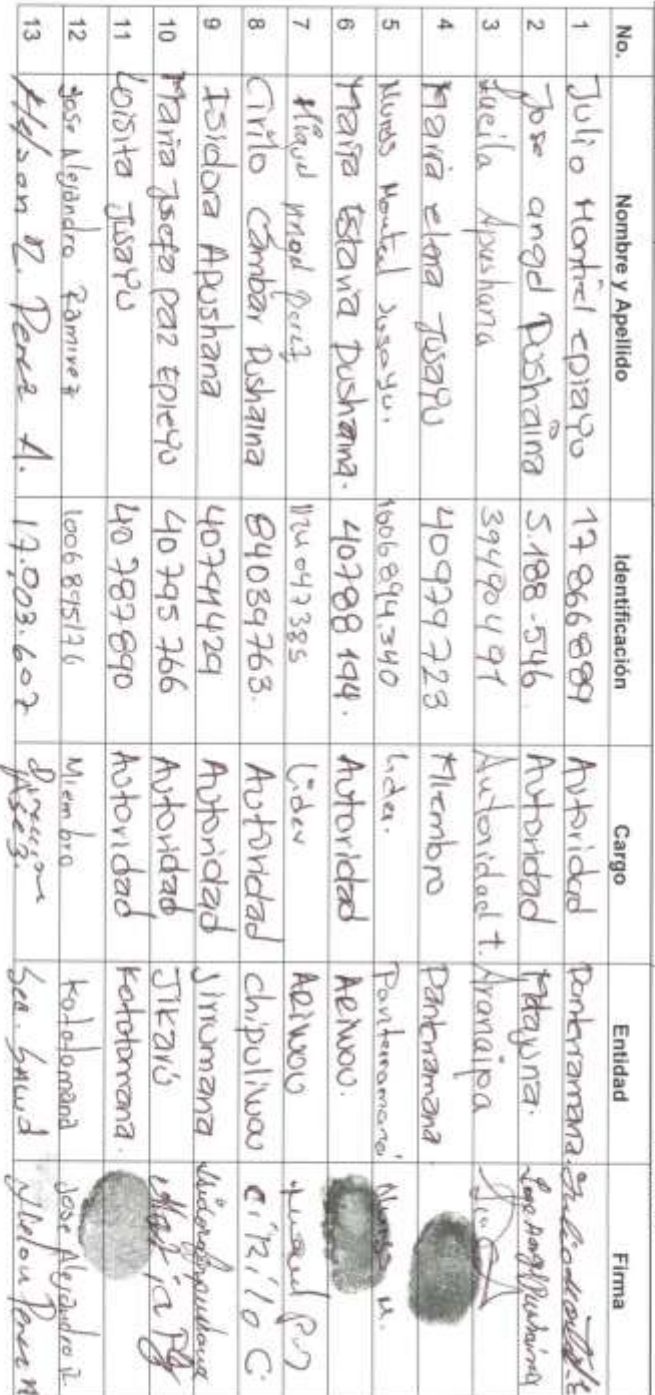 No. Nombre y Apellido Identificación Cargo Entidad Firma
1 Julio Montiel epiayu 17866889 Autoridad Panterramana.
2 Jose angel Pushaina 5.188.546 Autoridad Mayuna. Jose Angel Pushaina
3 Lucila Apushana 39490491 Autoridad t. Aranaipa
4 Maria elena Jusayu 40979723 Miembro Panterramana
5 Nuris Montiel Jusayu. 1006894.340 Lider. Panterramana Nuris M.
6 Maria Estavia Pushaina. 40788194. Autoridad Aeiwou.
7 Miguel 1124047385 Lider Aeiwou
8 Cirilo Cambar Pushaina 84039763. Autoridad Chipuliwou Cirilo C
9 Isidora Apushana 40791429 Autoridad Jirrumana
10 Maria Josefa paz Epieyu 40795766 Autoridad Jikaru
11 Loisita Jusayu 40787890 Autoridad Kototomana.
12 Jose Alejandro Ramirez 1006895176 Miembro Kototomana Jose Alejandro R.
13 Nelson R. Perez A. 17.903.607 Sec. Salud Nelson Perez A